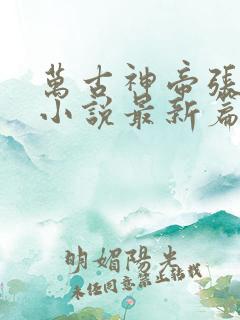 萬古神帝張
小說最新篇
明媚陽光
未經同意禁止轉載